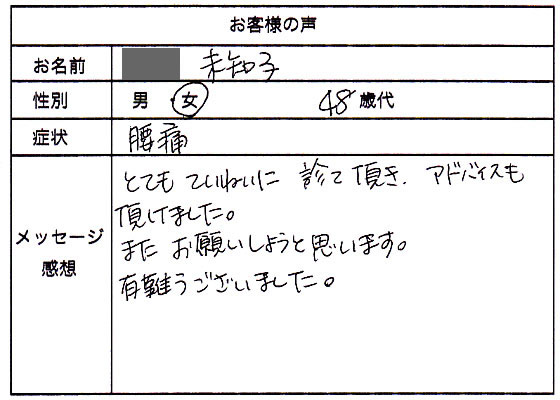 お客様の声
お名前 未知子
性別 男・女 48歳代
症状 腰痛
メッセージ
感想
とても ていねいに 診て頂き、アドバイスも
頂けました。
また お願いしようと思います。
有難うございました。